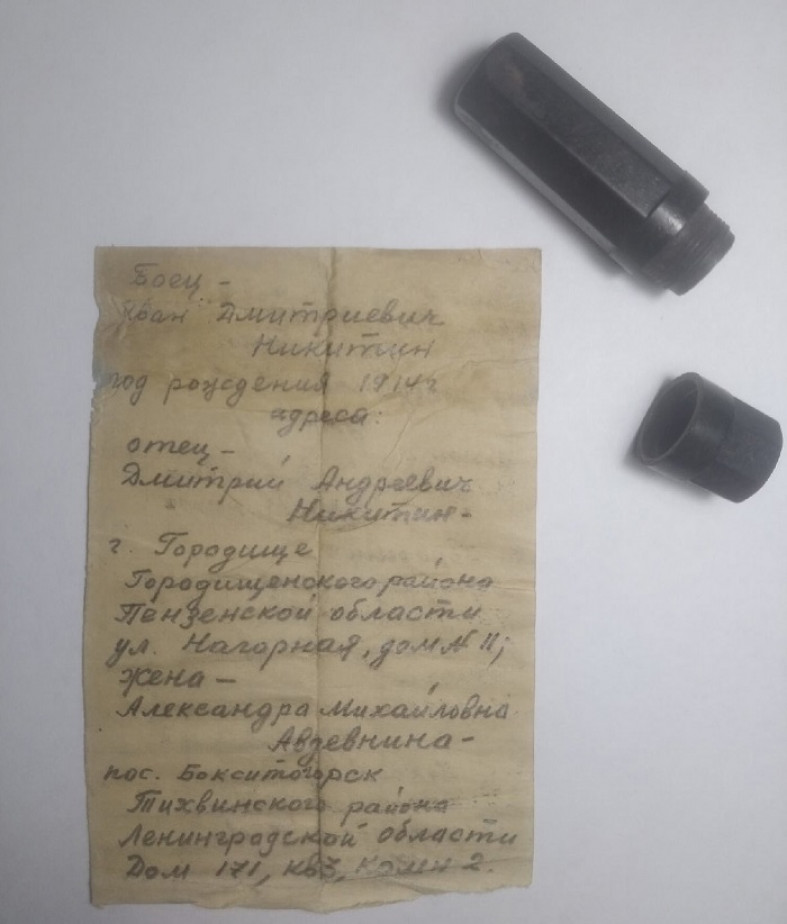 Боец -
Иван Дмитриевич
Никитин
год рождения 1914 г
адреса:
отец -
Дмитрий Андреевич
Никитин -
г. Городище
Городищенского района
Пензенской области
ул. Нагорная, дом № 11;
жена -
Александра Михайловна
Авдевнина -
пос. Бокситогорск
Тихвинского района
Ленинградской области
Дом 171, кв 3, комн 2.